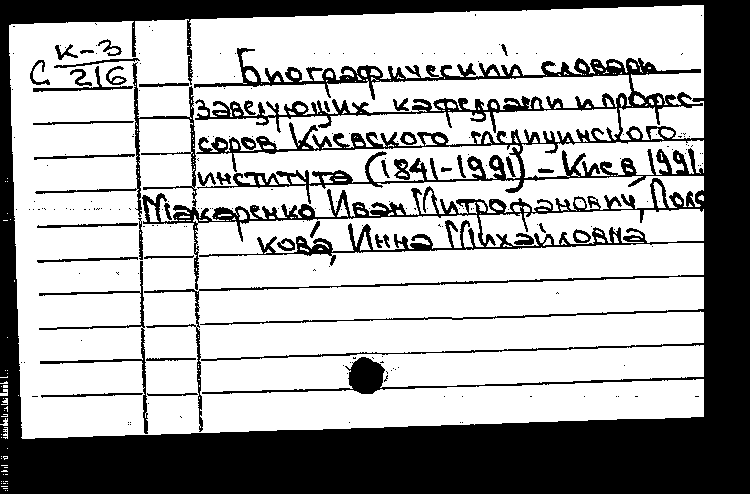 С К-3/216
Биографический словарь
заведующих кафедрами и профес-
соров Киевского медицинского
института (1841-1991). - Киев 1991.
Макаренко Иван Митрофанович, Поля
кова, Инна Михайловна